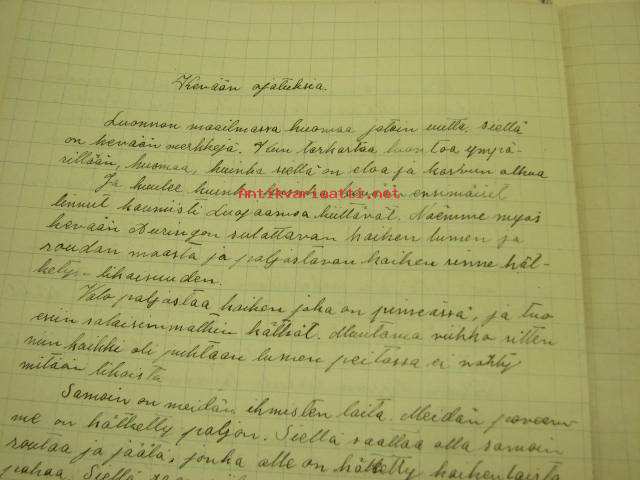 Kevään ajatuksia.
Luonnon maailmassa huomaa jotain uutta. Siellä
on kevään merkkejä. Kun tarkastaa luontoa ympä-
rillään, huomaa, kuinka siellä on eloa ja kasvun alkua
Ja kuulee kuinka kevään ensimäiset
antikvariaatti.net
linnut kauniisti Luojaansa kiittävät. Näemme myös
kevään Auringon sulattavan kaiken lumen ja
roudan maasta ja paljastavan kaiken sinne kät-
ketyn likaisuuden.
Valo paljastaa kaiken joka on pimeässä, ja tuo
esiin salaisimmatkin kätköt. Muutama viikko sitten
kun kaikki oli puhtaan lumen peitossa ei nähty
mitään likaista
Samoin on meidän ihmisten laita. Meidän poveem
me on kätketty paljon. Siellä saattaa olla samoin
routaa ja jäätä, jonka alle on kätketty kaikenlaista
pahaa. Siellä